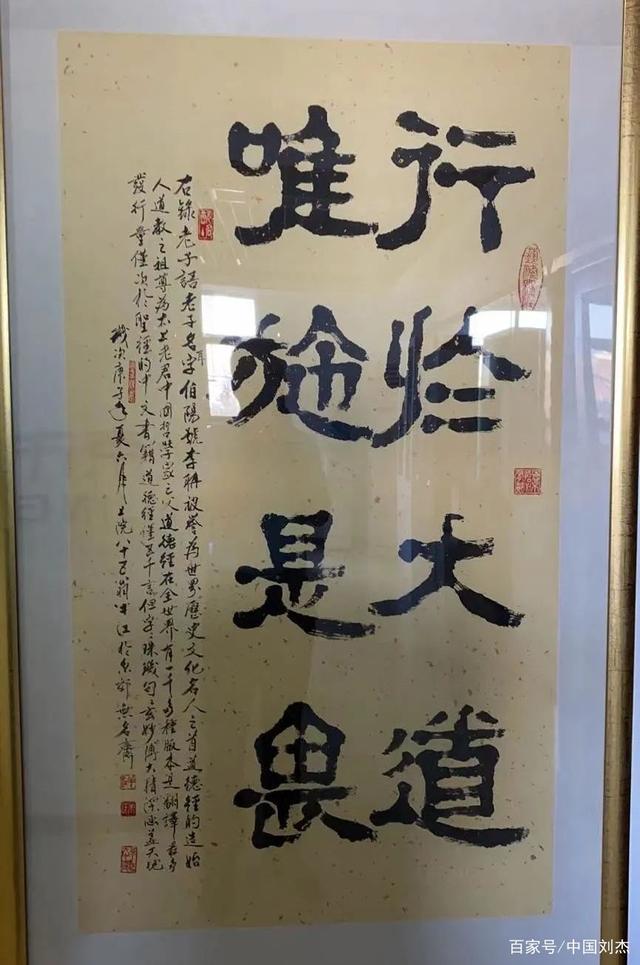 行於大道
唯施是畏
右錄老子語老子名耳字伯陽號李聃被譽為世界歷史文化名人之首道德經的造始
人道教之祖尊為太上老君中國哲學之父道德經在全世界有一千多種版本是翻譯最多
發行量僅次於聖經的中文書籍道德經僅五千言但字字珠璣句句玄妙博大精深涵蓋天地
歲次庚子年夏六月院八十五翁江於京都無名齋
百家号/中国刘杰